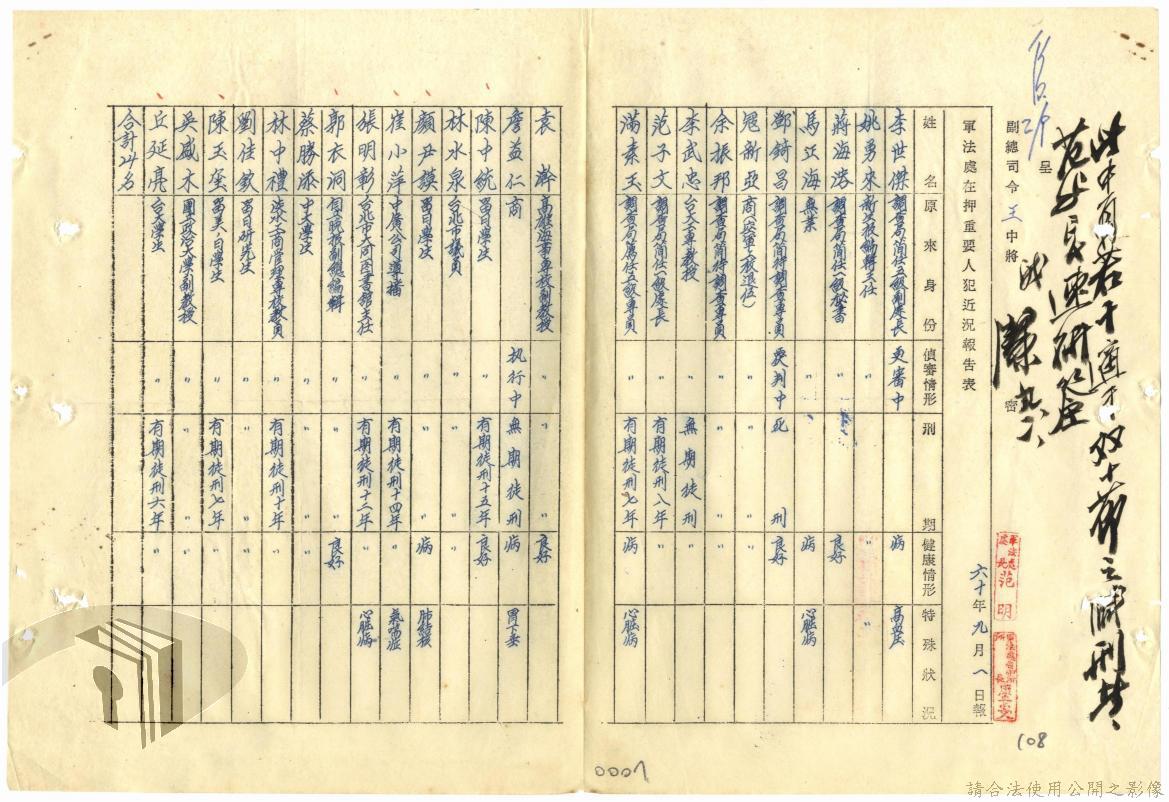 副總司令王中將
呈
密
軍法處在押重要人犯近況報告表
六十年九月八日報
姓名 原來身份 偵審情形 刑期 健康情形 特殊狀況
李世傑 調查局簡任五級副處長 更審中 病 高血压
姚勇來 新生報編輯主任 〃 〃 〃
蔣海溶 調查局簡任一級秘書 〃 良好
馬正海 無業 〃 病 心脏病
鄧錡昌 調查局簡待調查專員 覆判中 死刑 良好
冠新亞 商(空軍上校退伍) 〃 〃 〃
余振邦 調查局簡待調查專員 〃 〃 〃
李武忠 台大文專教授 〃 無期徒刑 〃
范子文 調查局簡任一級處長 〃 有期徒刑八年 〃
滿素玉 調查局薦任五級專員 〃 有期徒刑七年 病 心脏病
袁瀞 高雄海事專校副教授 〃 〃 良好
詹益仁 商 执行中 無期徒刑 病 胃下垂
陳中統 留日學生 〃 有期徒刑十五年 良好
林水泉 台北市議員 〃 〃 〃
顏尹謨 留日學生 〃 〃 病 肺結核
崔小萍 中廣公司導播 〃 有期徒刑十四年 〃 氣喘症
張明彰 台北市大同图書館主任 〃 有期徒刑十二年 〃 心脏病
郭衣洞 自立晚報副總編輯 〃 〃 良好
蔡勝添 中大學生 〃 〃 〃
林中禮 淡水工商管理專校教員 〃 有期徒刑十年 〃
劉佳欽 留日研究生 〃 〃 〃
陳玉璽 留美、日學生 〃 有期徒刑七年 〃
吳盛木 國立政治大學副教授 〃 〃 〃
丘延亮 台大學生 〃 有期徒刑六年 〃
合計24名
108
0007
請合法使用公開之影像